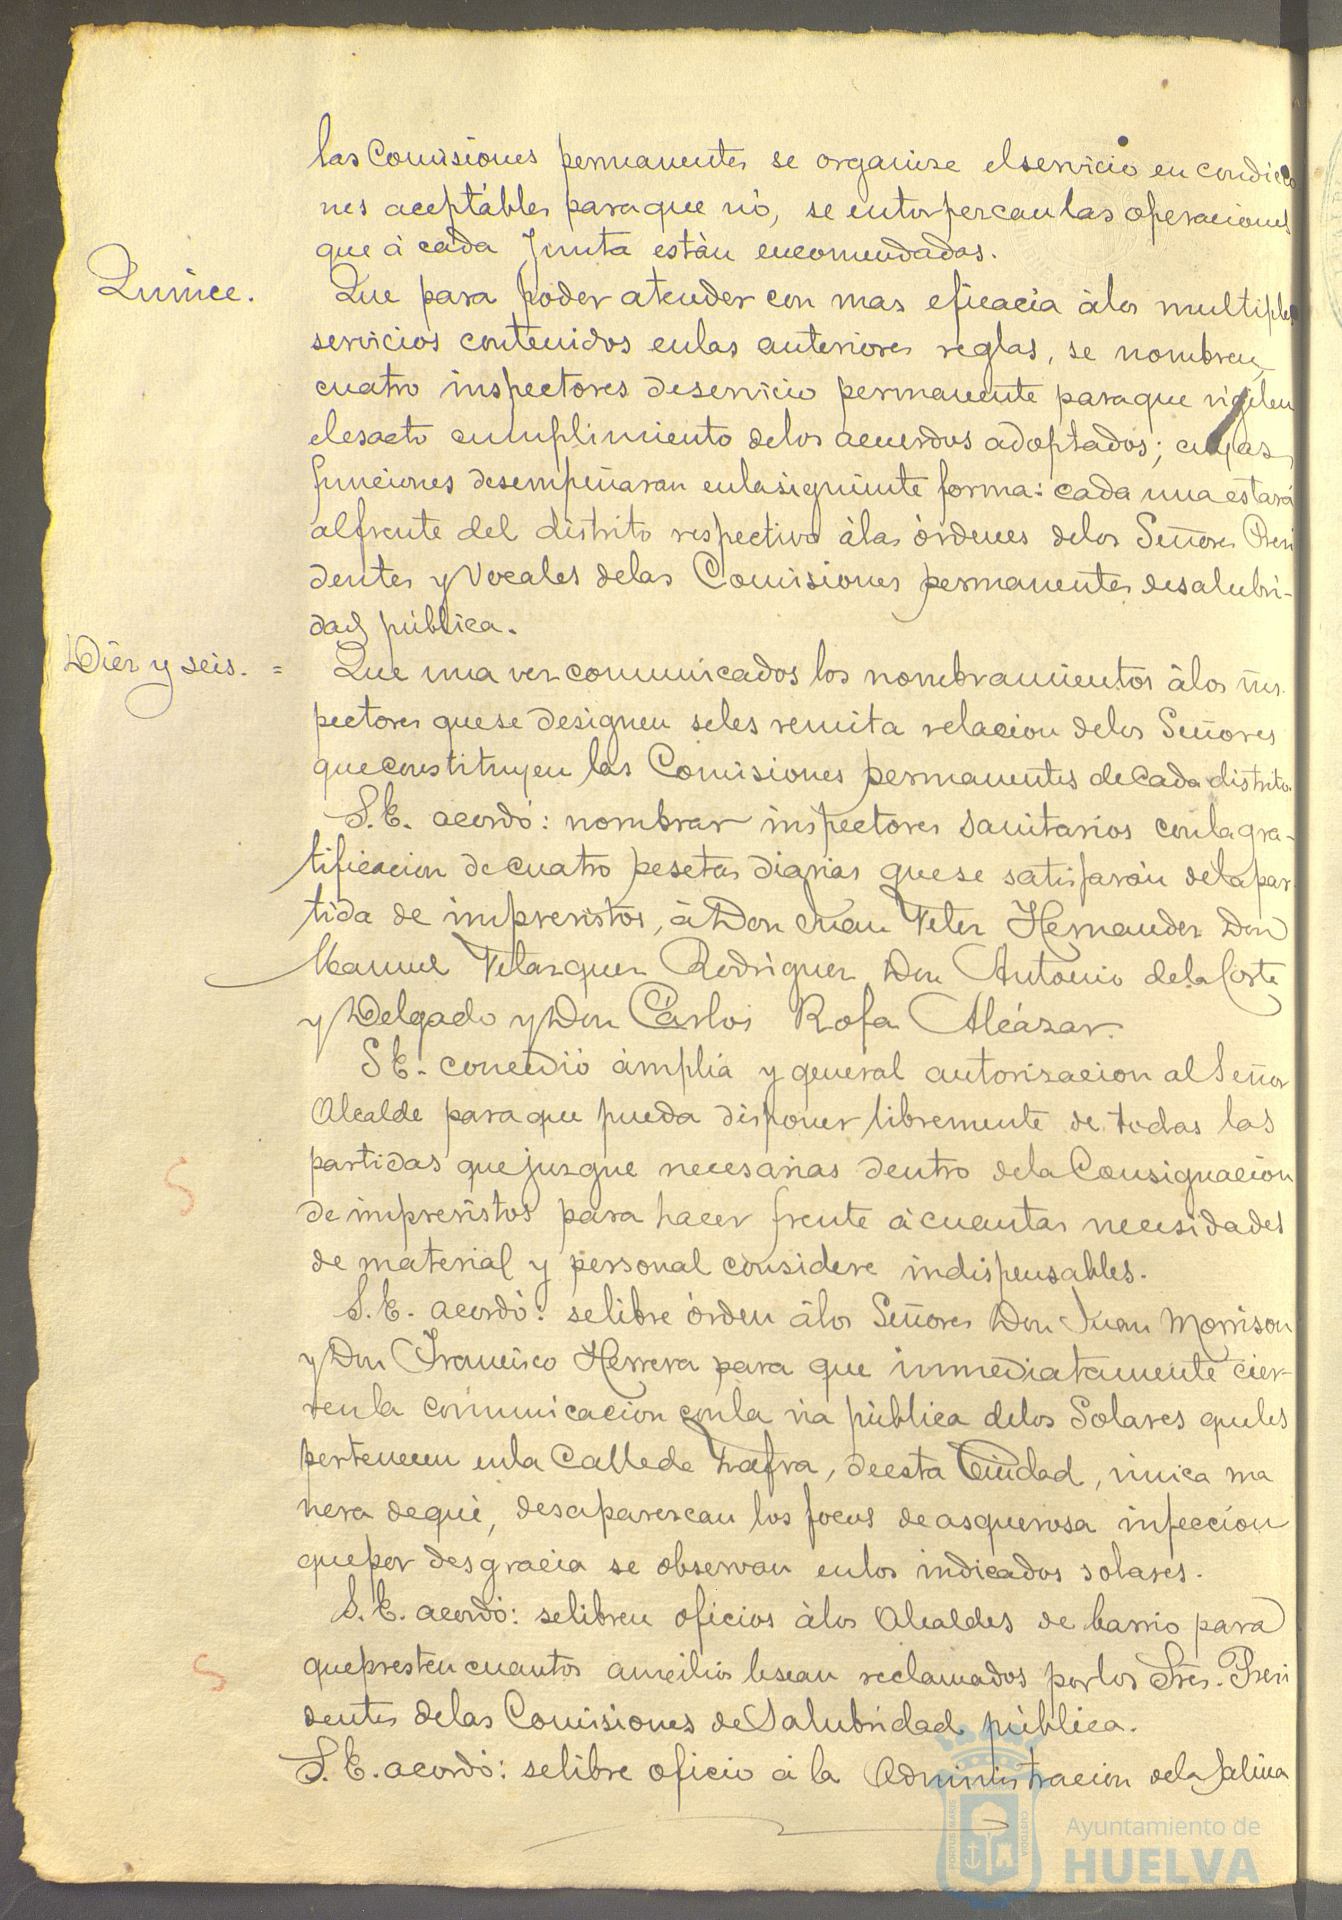 las Comisiones permanentes se organise el servicio en condicio
nes aceptábles para que nó, se entorpezcan las operaciones
que á cada Junta están encomendadas.
Quince. Que para poder atender con mas eficacia á los multiples
servicios contenidos en las anteriores reglas, se nombren
cuatro inspectores de servicio permanente para que vigilen
el esacto cumplimiento de los acuerdos adoptados; cuyas
funciones desempeñaran en la siguiente forma: cada una estará
al frente del distrito respectivo á las órdenes de los Señores Presi
dentes y Vocales de las Comisiones permanentes de salubri-
dad pública.
Diez y seis. = Que una vez comunicados los nombramientos á los ins-
pectores que se designen se les remita relacion de los Señores
que constituyen las Comisiones permanentes de cada distrito.
S.E. acordó: nombrar inspectores sanitarios con la gra-
tificacion de cuatro pesetas diarias que se satisfarán de la par-
tida de imprevistos, á Don Juan Hernandez Don
Manuel Velazquez Rodriguez Don Antonio de la Corte
y Delgado y Don Cárlos Rofa Alcázar.
S E. concedió ámplia y general autorizacion al Señor
Alcalde para que pueda disponer libremente de todas las
partidas que juzgue necesarias dentro de la Consignacion
de imprevistos para hacer frente á cuantas necesidades
de material y personal considere indispensables.
S.E. acordó: se libre órden á los Señores Don Juan Morrison
y Don Francisco Herrera para que inmediatamente cier-
ren la cómunicacion con la via pública de los Solares que les
pertenecen en la Calle de Zafra, de esta Ciudad, única ma
nera de que, desaparezcan los focus de asquerosa infeccion
que por desgracia se observan en los indicados solares.
S.E. acordó: se libren oficios á los Alcaldes de barrio para
que presten cuantos auxilios le sean reclamados por los Sres. Presi
dentes de las Comisiones de Salubridad pública.
S.E. acordó: se libre oficio á la Administracion de la Salina
Ayuntamiento de
HUELVA